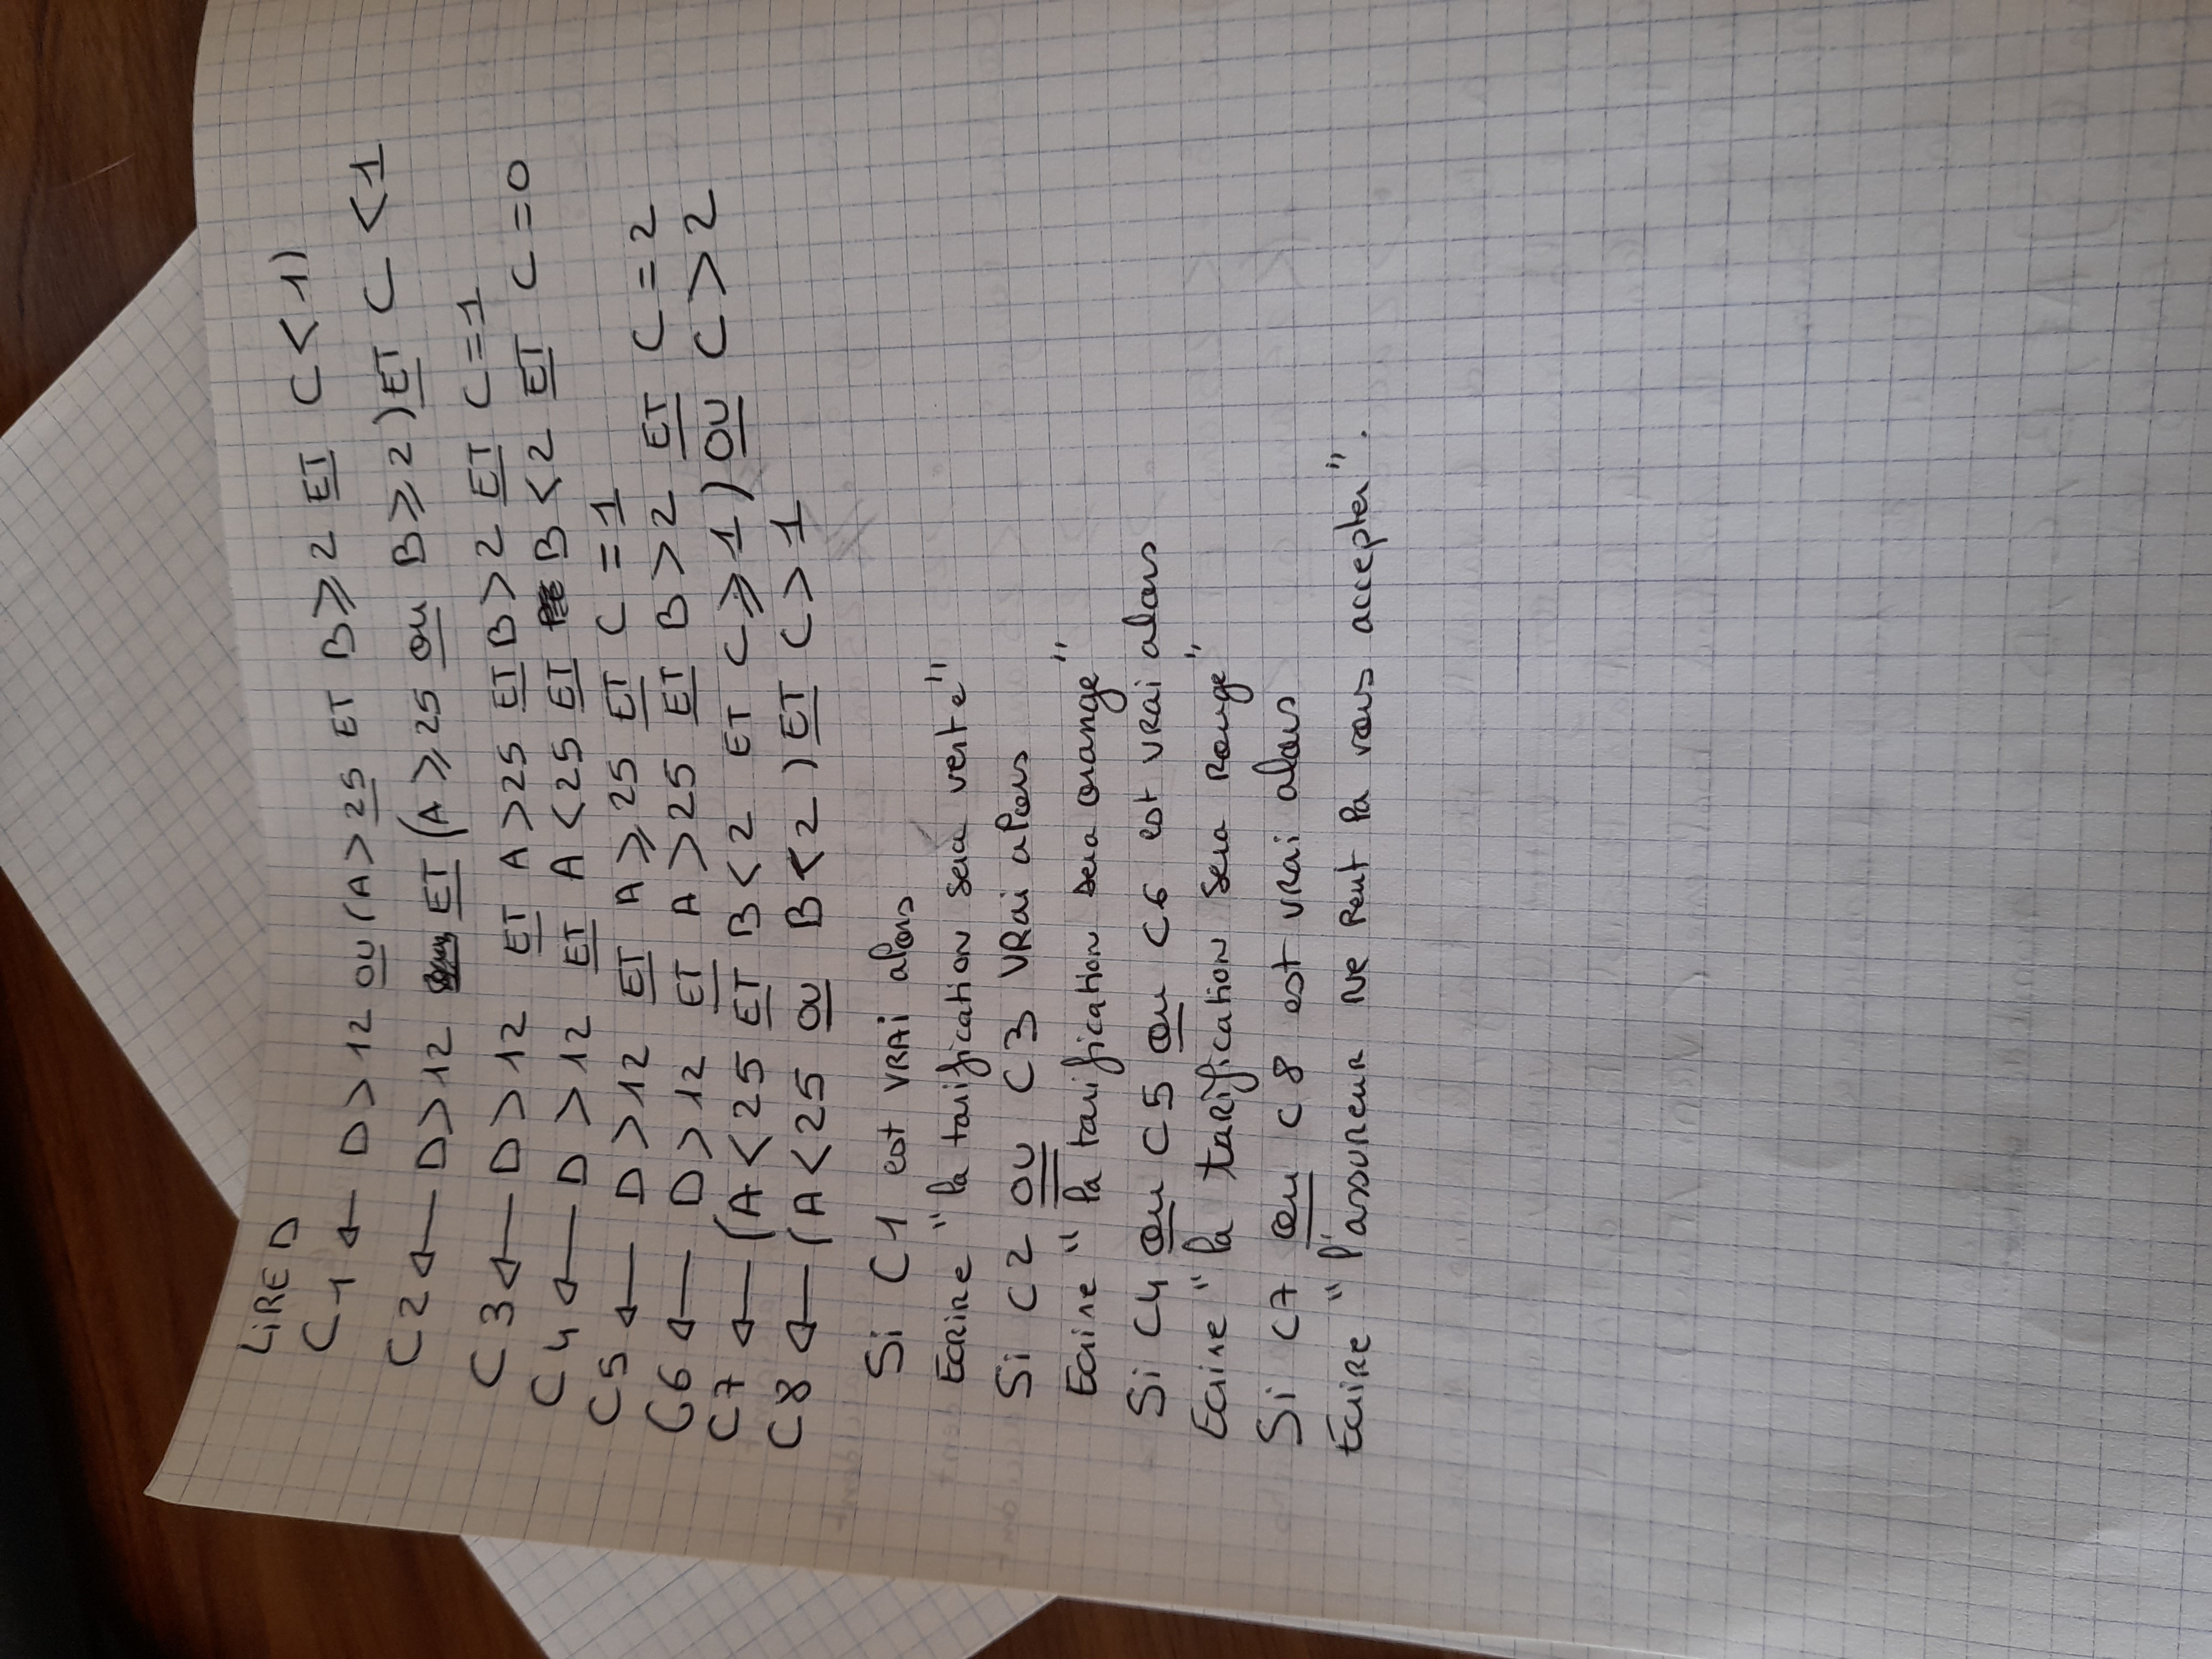 LiRE D
C1 ← D > 12 OU (A > 25 ET B ⩾ 2 ET C < 1)
C2 ← D > 12 ET (A ⩾ 25 ou B ⩾ 2) ET C < 1
C3 ← D > 12 ET A > 25 ET B > 2 ET C = 1
C4 ← D > 12 ET A < 25 ET B < 2 ET C = 0
C5 ← D > 12 ET A ⩾ 25 ET C = 1
C6 ← D > 12 ET A > 25 ET B > 2 ET C = 2
C7 ← (A < 25 ET B < 2 ET C ⩾ 1) OU C > 2
C8 ← (A < 25 OU B < 2) ET C > 1
Si C1 est VRAi alors
Ecrire "la tarification sera verte"
Si C2 OU C3 VRai alors
Ecrire "la tarification sera orange"
Si C4 ou C5 ou C6 est vrai alors
Ecrire "la tarification sera Rouge"
Si C7 ou C8 est vrai alors
Ecrire "l'assureur ne peut pa vous accepter".